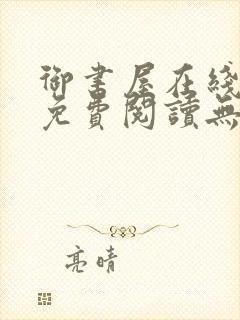 御書屋在綫
免費閱讀無
亮晴